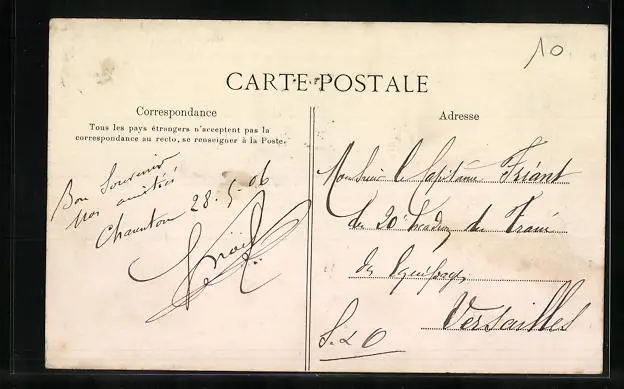 10
CARTE POSTALE
Correspondance
Tous les pays étrangers n'acceptent pas la
correspondance au recto, se renseigner à la Poste.
Bon Souvenir
Nos amitiés
28-5-06
Adresse
Monsieur le Capitaine Friant
du 20e Escadron du Train
des Equipages
Versailles
S. & O